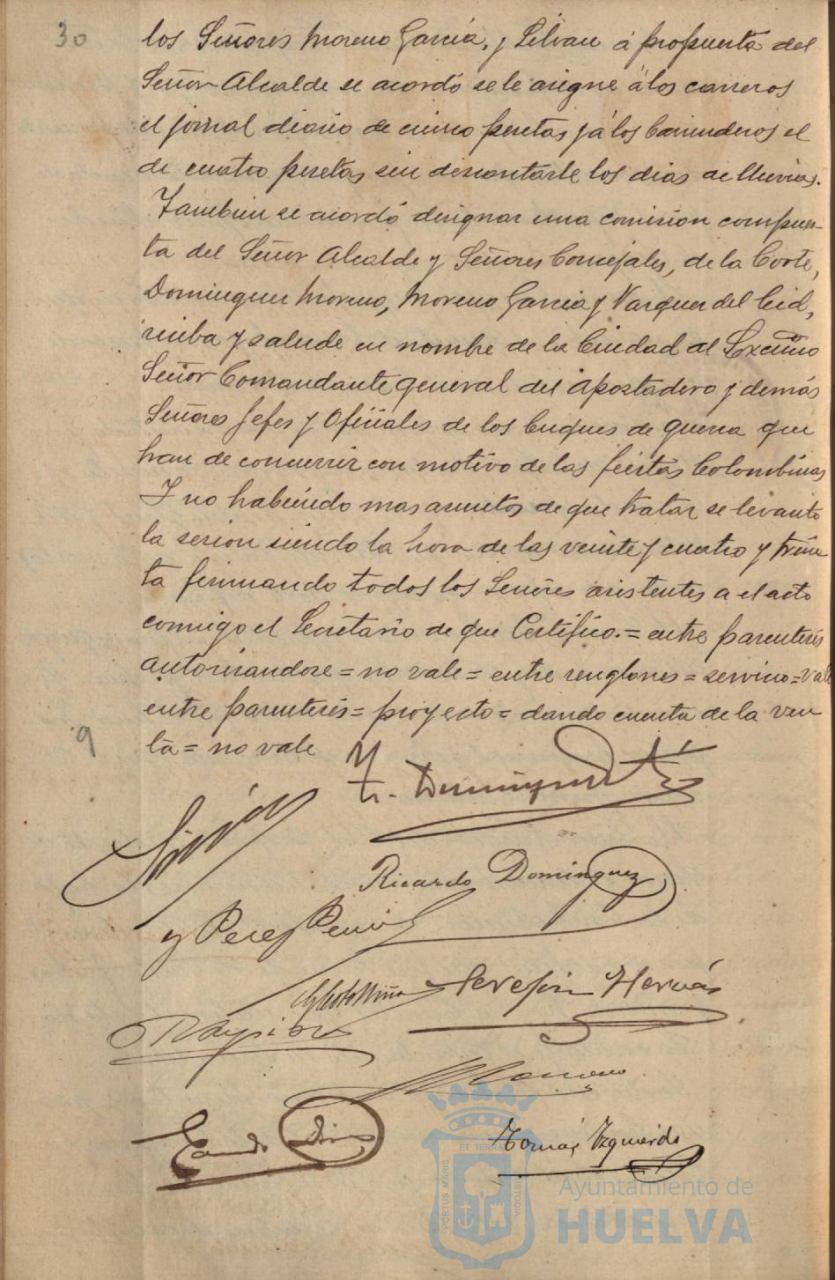 30
los Señores Moreno García, y Silvan á propuesta del
Señor Alcalde se acordó se le asigne á los carreros
el jornal diario de cinco pesetas y á los barrenderos el
de cuatro pesetas sin descontarle los dias de lluvias.
Tambien se acordó designar una comision compues-
ta del Señor Alcalde y Señores Concejales, de la Corte,
Dominguez Moreno, Moreno Garcia y Vazquez del Cid,
reciba y salude en nombre de la Ciudad al Excmo
Señor Comandante general del apostadero y demás
Señores Jefes y Oficiales de los buques de guerra que
han de concurrir con motivo de las fiestas Colombinas
Y no habiendo mas asuntos de que tratar se levantó
la sesion siendo la hora de las veinte y cuatro y trein
ta firmando todos los Señores asistentes a el acto
conmigo el Secretario de que Certifico.= entre parentesis
autorisandose = no vale = entre renglones = servicio = vale
entre parentesis = proyecto = dando cuenta de la ven
ta = no vale
9
Ricardo Dominguez
y Perez
Serefin Hervás
Tomás Izquierdo
PORTUS MARIS
ET TERRAE
CUSTODIA
Ayuntamiento de
HUELVA